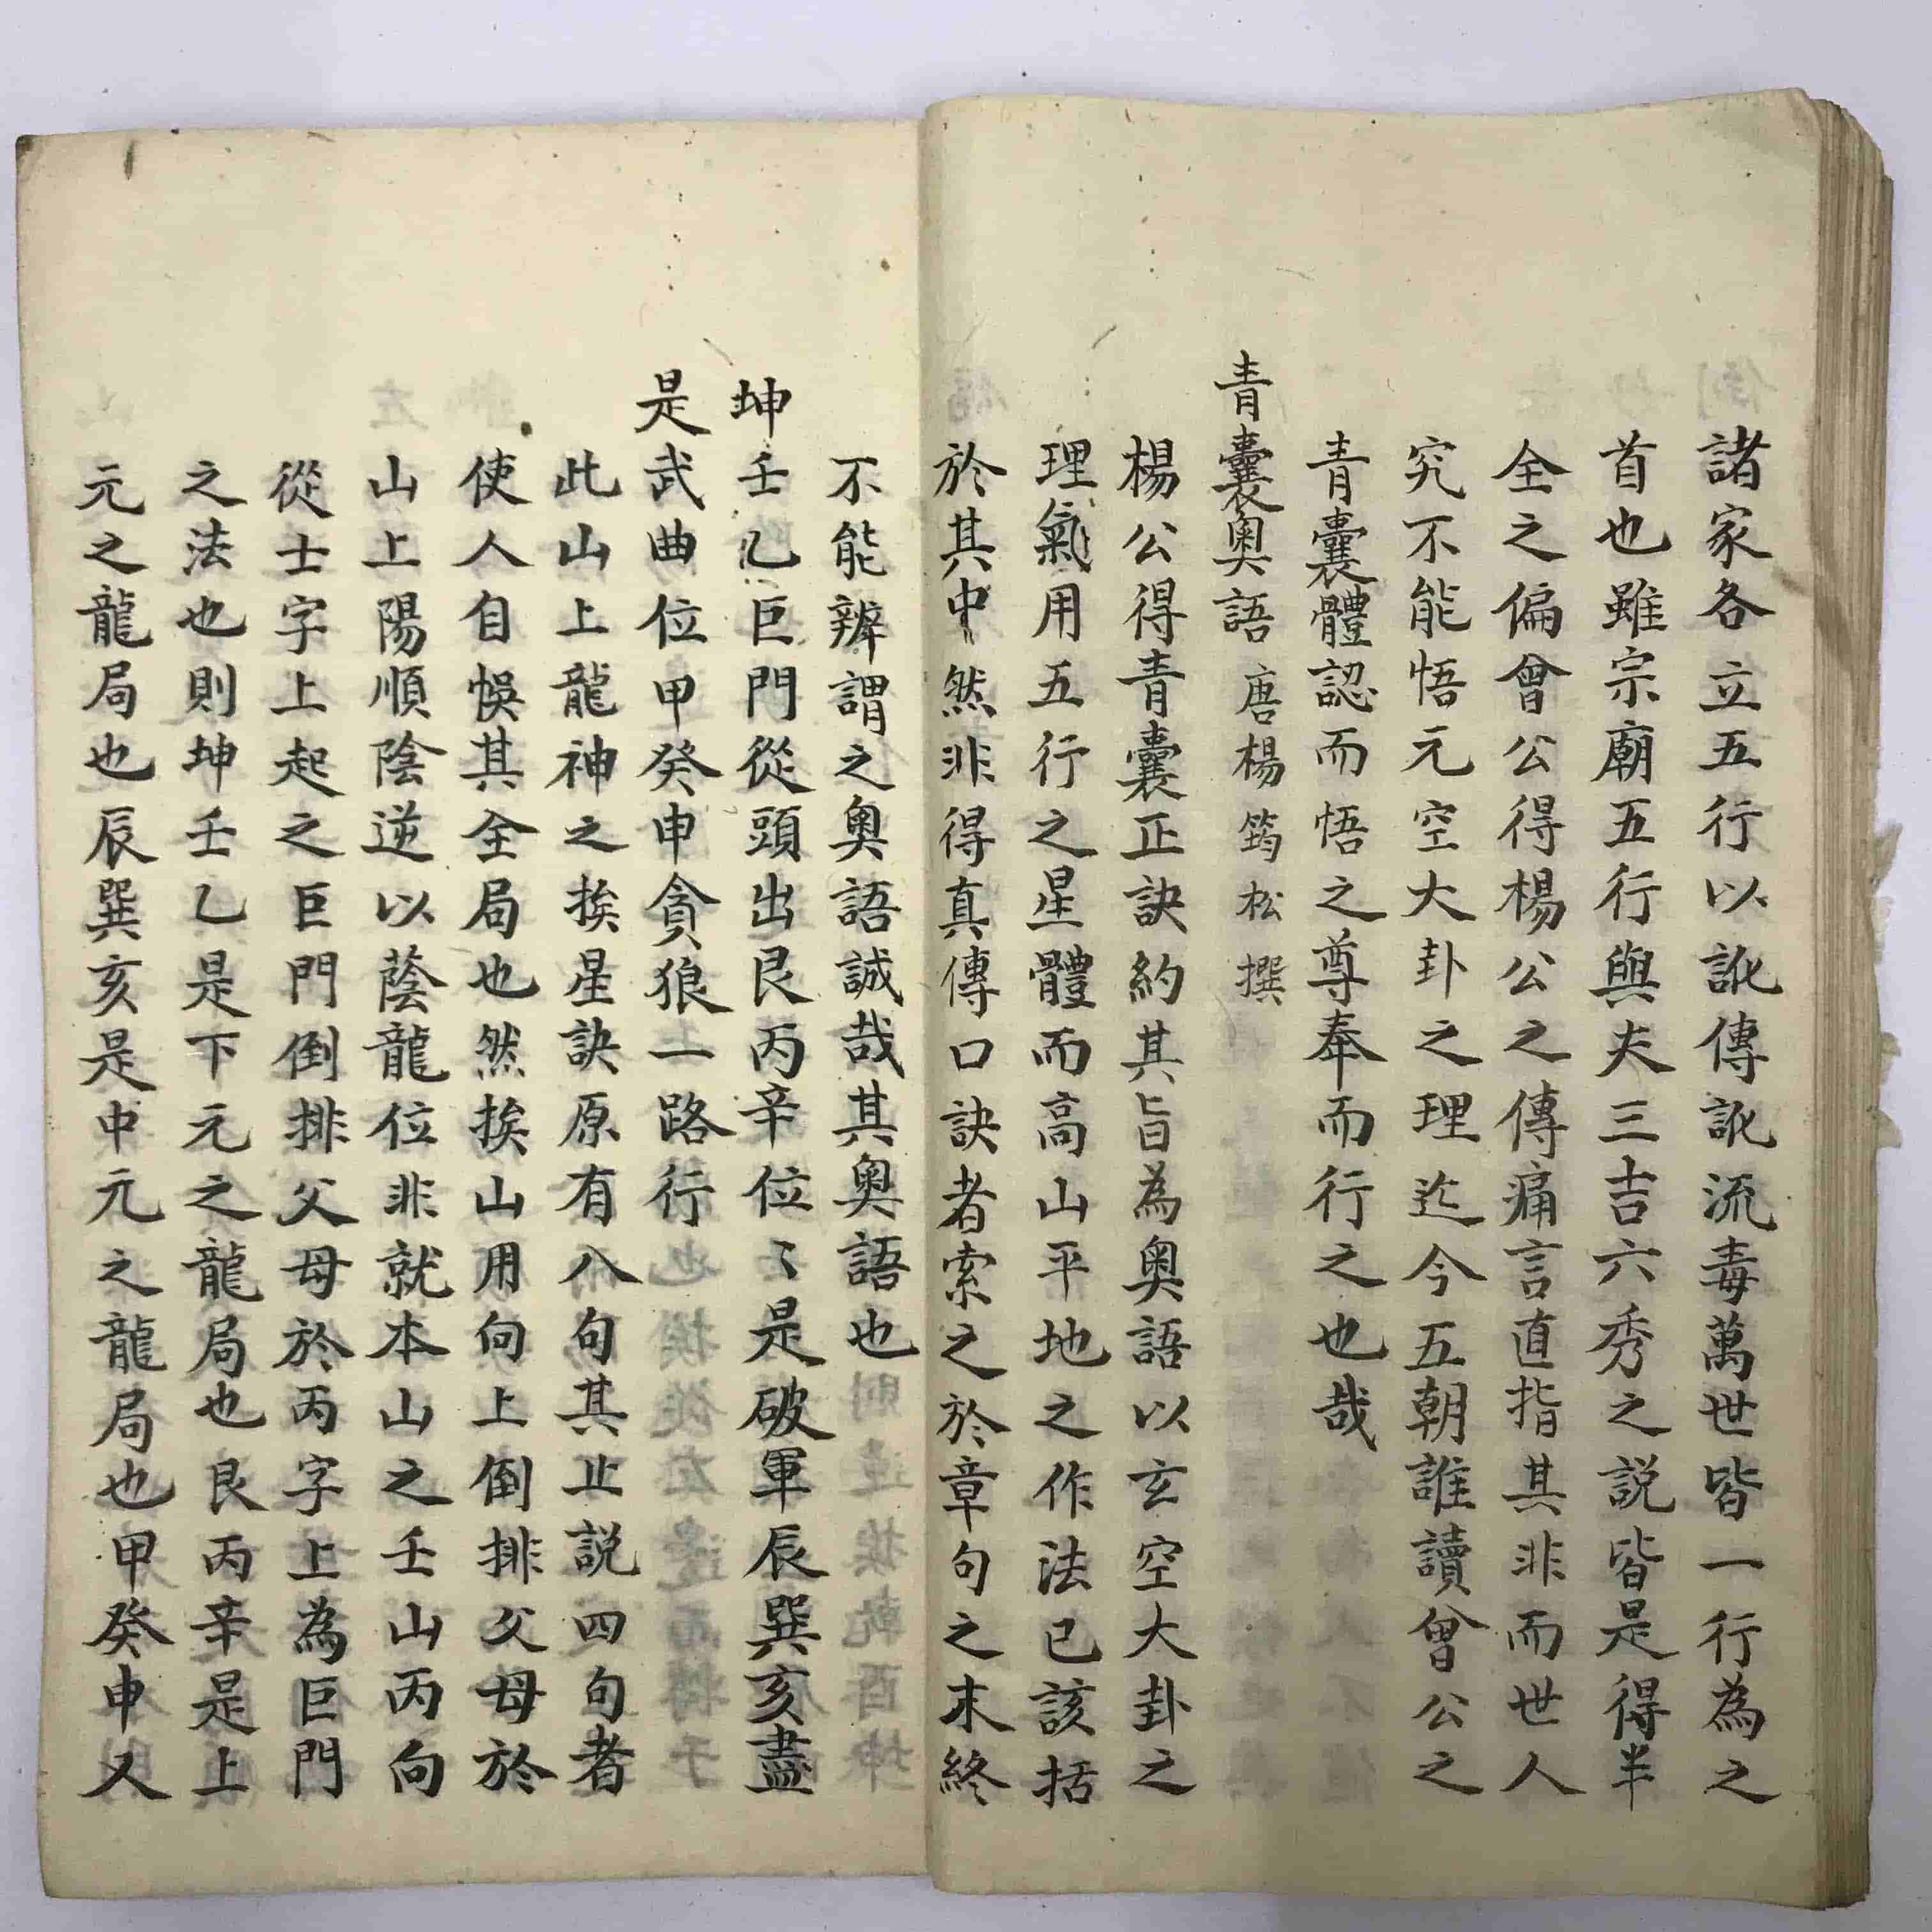 諸家各立五行以訛傳訛流毒萬世皆一行為之
首也雖宗廟五行與夫三吉六秀之説皆是得半
全之偏曾公得楊公之傳痛言直指其非而世人
究不能悟元空大卦之理迄今五朝誰讀曾公之
青囊體認而悟之尊奉而行之也哉
青囊奥語 唐楊筠松撰
楊公得青囊正訣約其旨為奥語以玄空大卦之
理氣用五行之星體而高山平地之作法已該括
於其中然非得真傳口訣者索之於章句之末終
不能辨謂之奥語誠哉其奥語也
坤壬乙巨門從頭出艮丙辛位〻是破軍辰巽亥盡
是武曲位甲癸申貪狼一路行
此山上龍神之挨星訣原有八句其止説四句者
使人自悞其全局也然挨山用向上倒排父母於
山上陽順陰逆以蔭龍位非就本山之壬山丙向
從士字上起之巨門倒排父母於丙字上為巨門
之法也則坤壬乙是下元之龍局也艮丙辛是上
元之龍局也辰巽亥是中元之龍局也甲癸申又